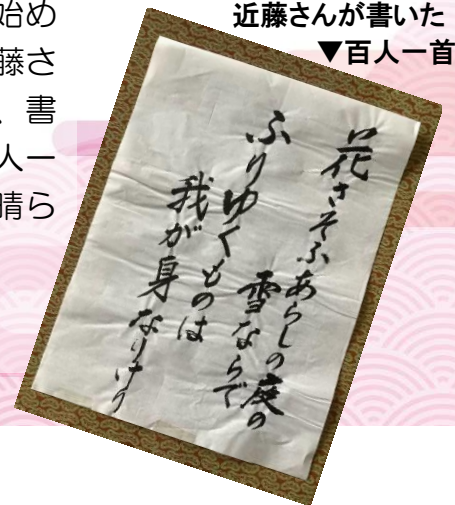 始め
藤さ
、書
人一
晴ら
近藤さんが書いた
▼百人一首
花さそふあらしの庭の
雪ならで
ふりゆくものは
我が身なりけり